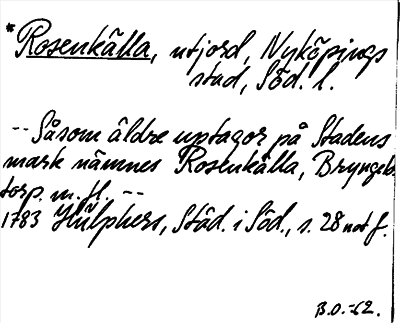 *Rosenkälla, utjord, Nyköpings
stad, Söd. l.
-- Såsom äldre uptagor på Stadens
mark nämnes Rosenkälla, Bryngels
torp. m. fl. --
1783 Hülphers, Städ. i Söd., s. 28 not f.
B.O.-62.